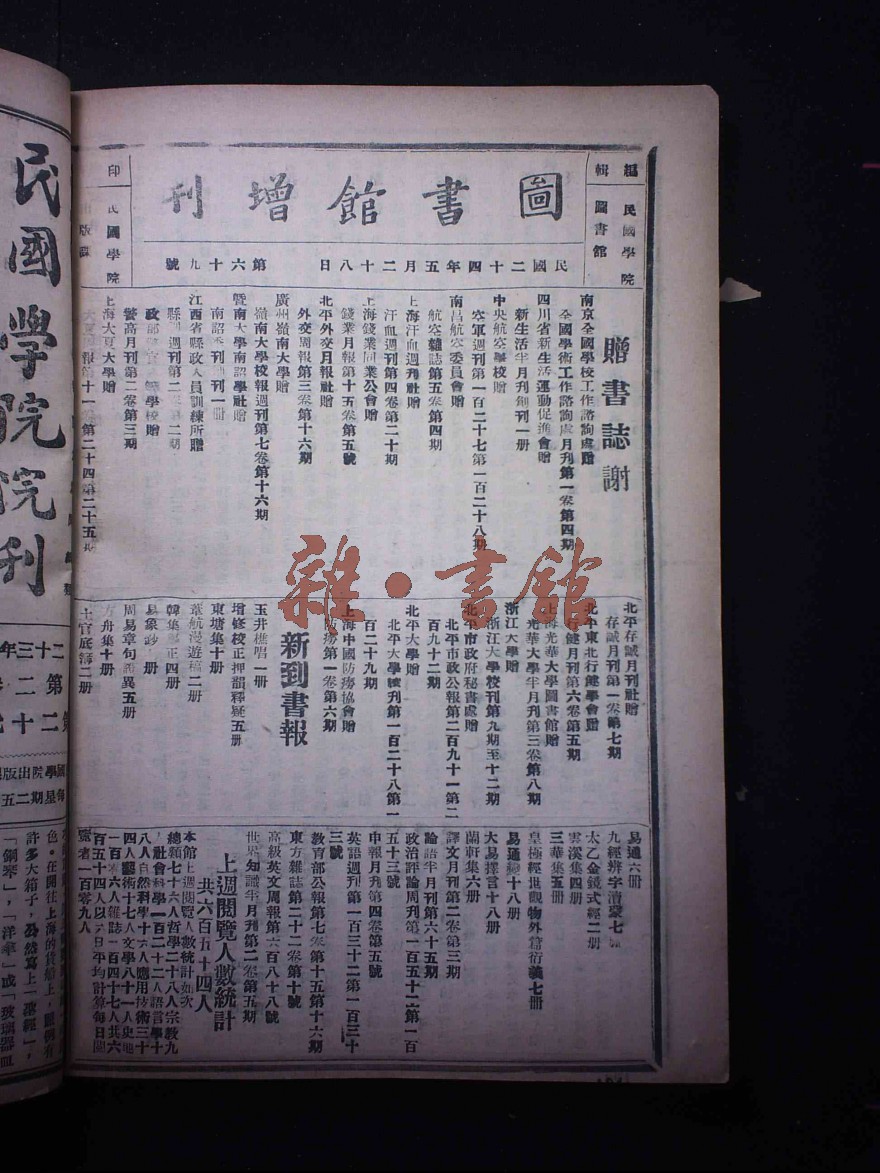 圖書館增刊
編輯 民國學院圖書館
印 民國學院出版
民國二十四年五月二十八日 第六十九號
贈書誌謝
南京全國學校工作諮詢處贈
全國學術工作諮詢處月刊第一卷第四期
四川省新生活運動促進會贈
新生活半月刊創刊一册
中央航空學校贈
空軍週刊第一百二十七第一百二十八期
南昌航空委員會贈
航空雜誌第五卷第四期
上海汗血週刊社贈
汗血週刊第四卷第二十期
上海錢業同業公會贈
錢業月報第十五卷第五號
北平外交月報社贈
外交周報第三卷第十六期
廣州嶺南大學贈
嶺南大學校報週刊第七卷第十六期
暨南大學南詔學社贈
南詔季刊創刊一册
江西省縣政人員訓練所贈
縣訓週刊第二期
學校贈
警高月刊第二卷第三期
上海大夏大學贈
大夏週報第十一卷第二十四第二十五期
北平存誠月刊社贈
存誠月刊第一卷第七期
北平東北行健學會贈
行健月刊第六卷第五期
上海光華大學圖書館贈
光華大學半月刊第三卷第八期
浙江大學贈
浙江大學校刊第九期至十二期
北平市政府秘書處贈
北平市政公報第二百九十一第二百九十二期
北平大學贈
北平大學校刊第一百二十八第一百二十九期
上海中國防癆協會贈
防癆第一卷第六期
新到書報
玉井樵唱一册
增修校正押韻釋疑五册
東塘集十册
葦航漫遊稿二册
韓集舉正四册
易象鈔 册
周易章句證異五册
方舟集十册
士官底簿二册
易通六册
九經辨字瀆蒙七册
太乙金鏡式經二册
雲溪集四册
三華集五册
皇極經世觀物外篇衍義七册
易通變十八册
大易擇言十八册
蘭軒集六册
譯文月刊第二卷第三期
論語半月刊第六十五期
政治評論周刊第一百五十二第一百五十三號
申報月刊第四卷第五號
英語週刊第一百三十二第一百三十三號
教育部公報第七卷第十五第十六期
東方雜誌第二十二卷第十號
高級英文周報第六百八十八號
世界知識半月刊第二卷第五期
上週閱覽人數統計
共六百五十四人
本館上週閱覽人數統計如次
總類七十六人哲學二十八人宗教九
人社會科學一百二十二人語言學十
八人自然科學十六人應用技術三十
四人藝術十七人文學八十一人史地
一百零六人雜誌一百四十七人共六
百五十四人以六日平均計算每日閱
覽者一百零九人
民國學院院刊
二十三年
第二卷
許多大箱子，公然寫上「落經」，
「鋼琴」，「洋傘」或「玻璃器皿
雜·書館